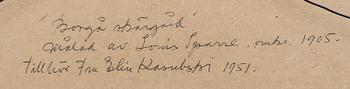 "Borgå skärgård"
målad av Louis Sparre. omkr. 1905.
Tillhör Fru Elin Kasubski 1951.